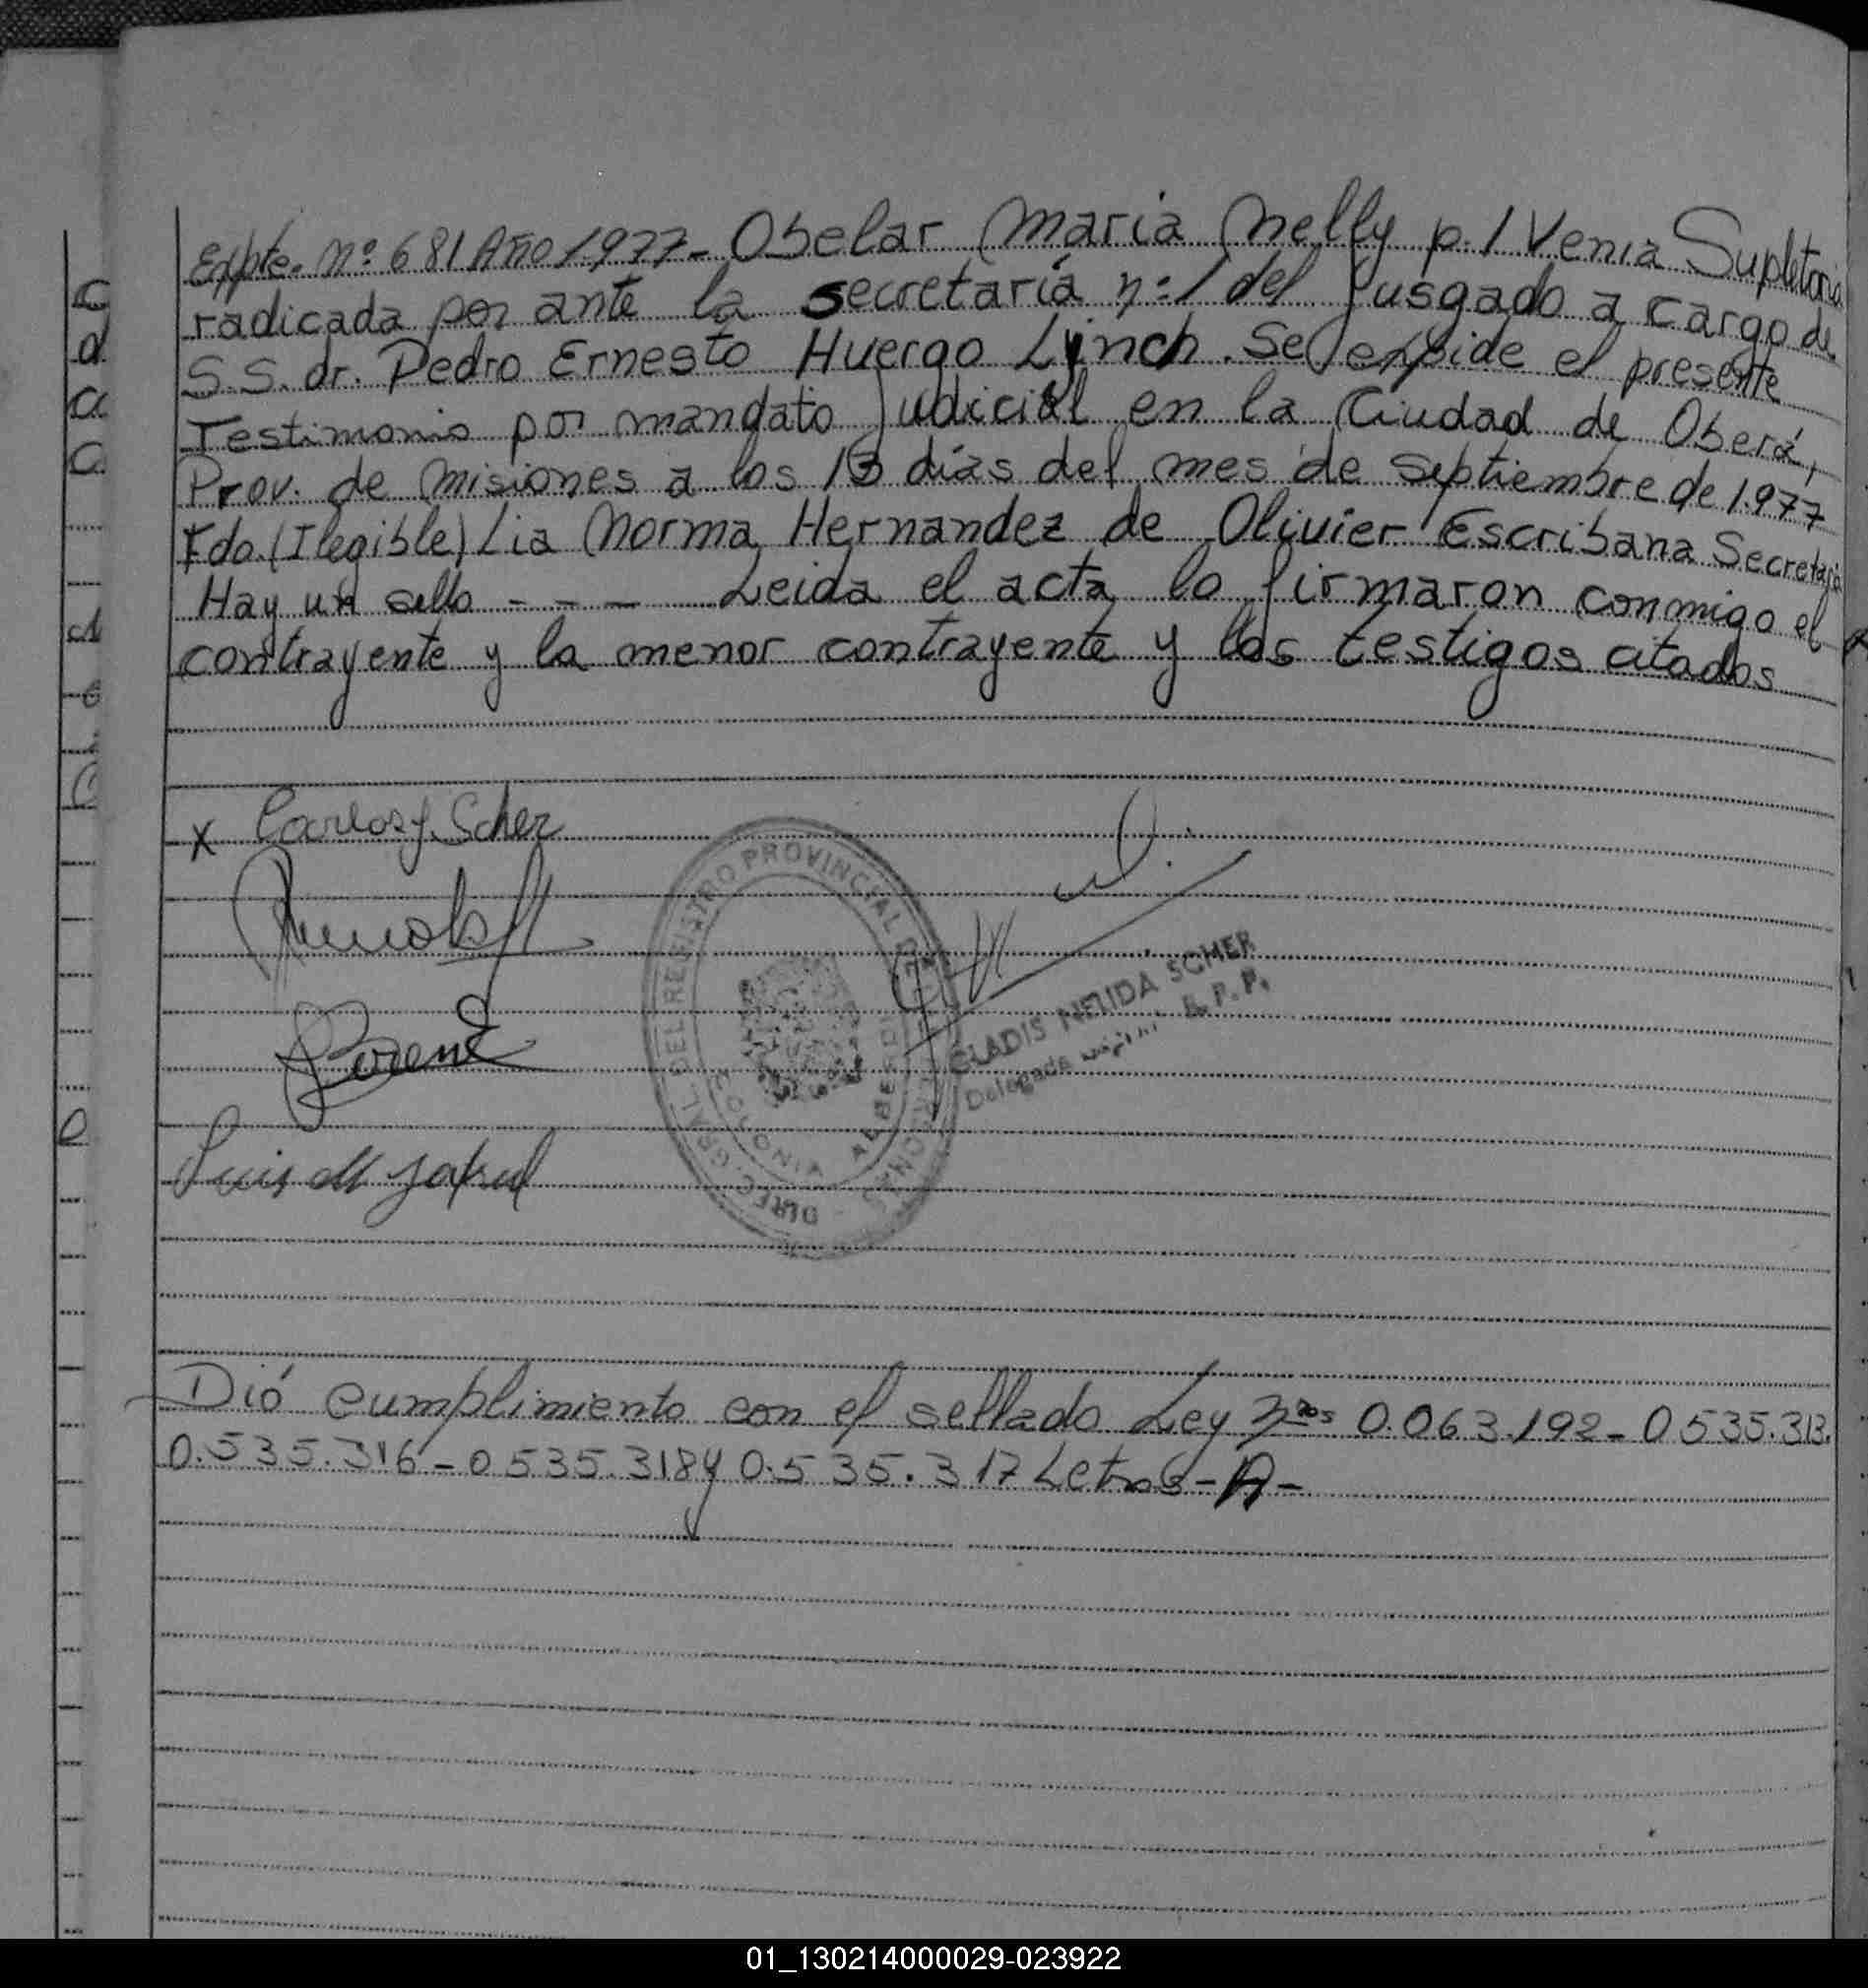 Expte. nº 681 Año 1.977 - Obelar Maria Nelly p./ Venia Supletoria
radicada por ante la secretaría nº 1 del Jusgado a cargo de
S.S. dr. Pedro Ernesto Huergo Lynch. Se expide el presente
Testimonio por mandato Judicial en la Ciudad de Oberá,
Prov. de Misiones a los 13 días del mes de septiembre de 1.977
Fdo. (Ilegible) Lia Norma Hernandez de Olivier Escribana Secretaria
Hay un sello - - - Leida el acta lo firmaron conmigo el
contrayente y la menor contrayente y los testigos citados
x Carlos J. Scher
DIREC. GRAL. DEL REGISTRO PROVINCIAL DE
GLADIS NELIDA SCHER
Delegada R. P. P.
Luis M
Dió cumplimiento con el sellado Ley nros 0.063.192 - 0535.313.
0.535.316 - 0535.318 y 0.535.317 Letras - A -
01_130214000029-023922